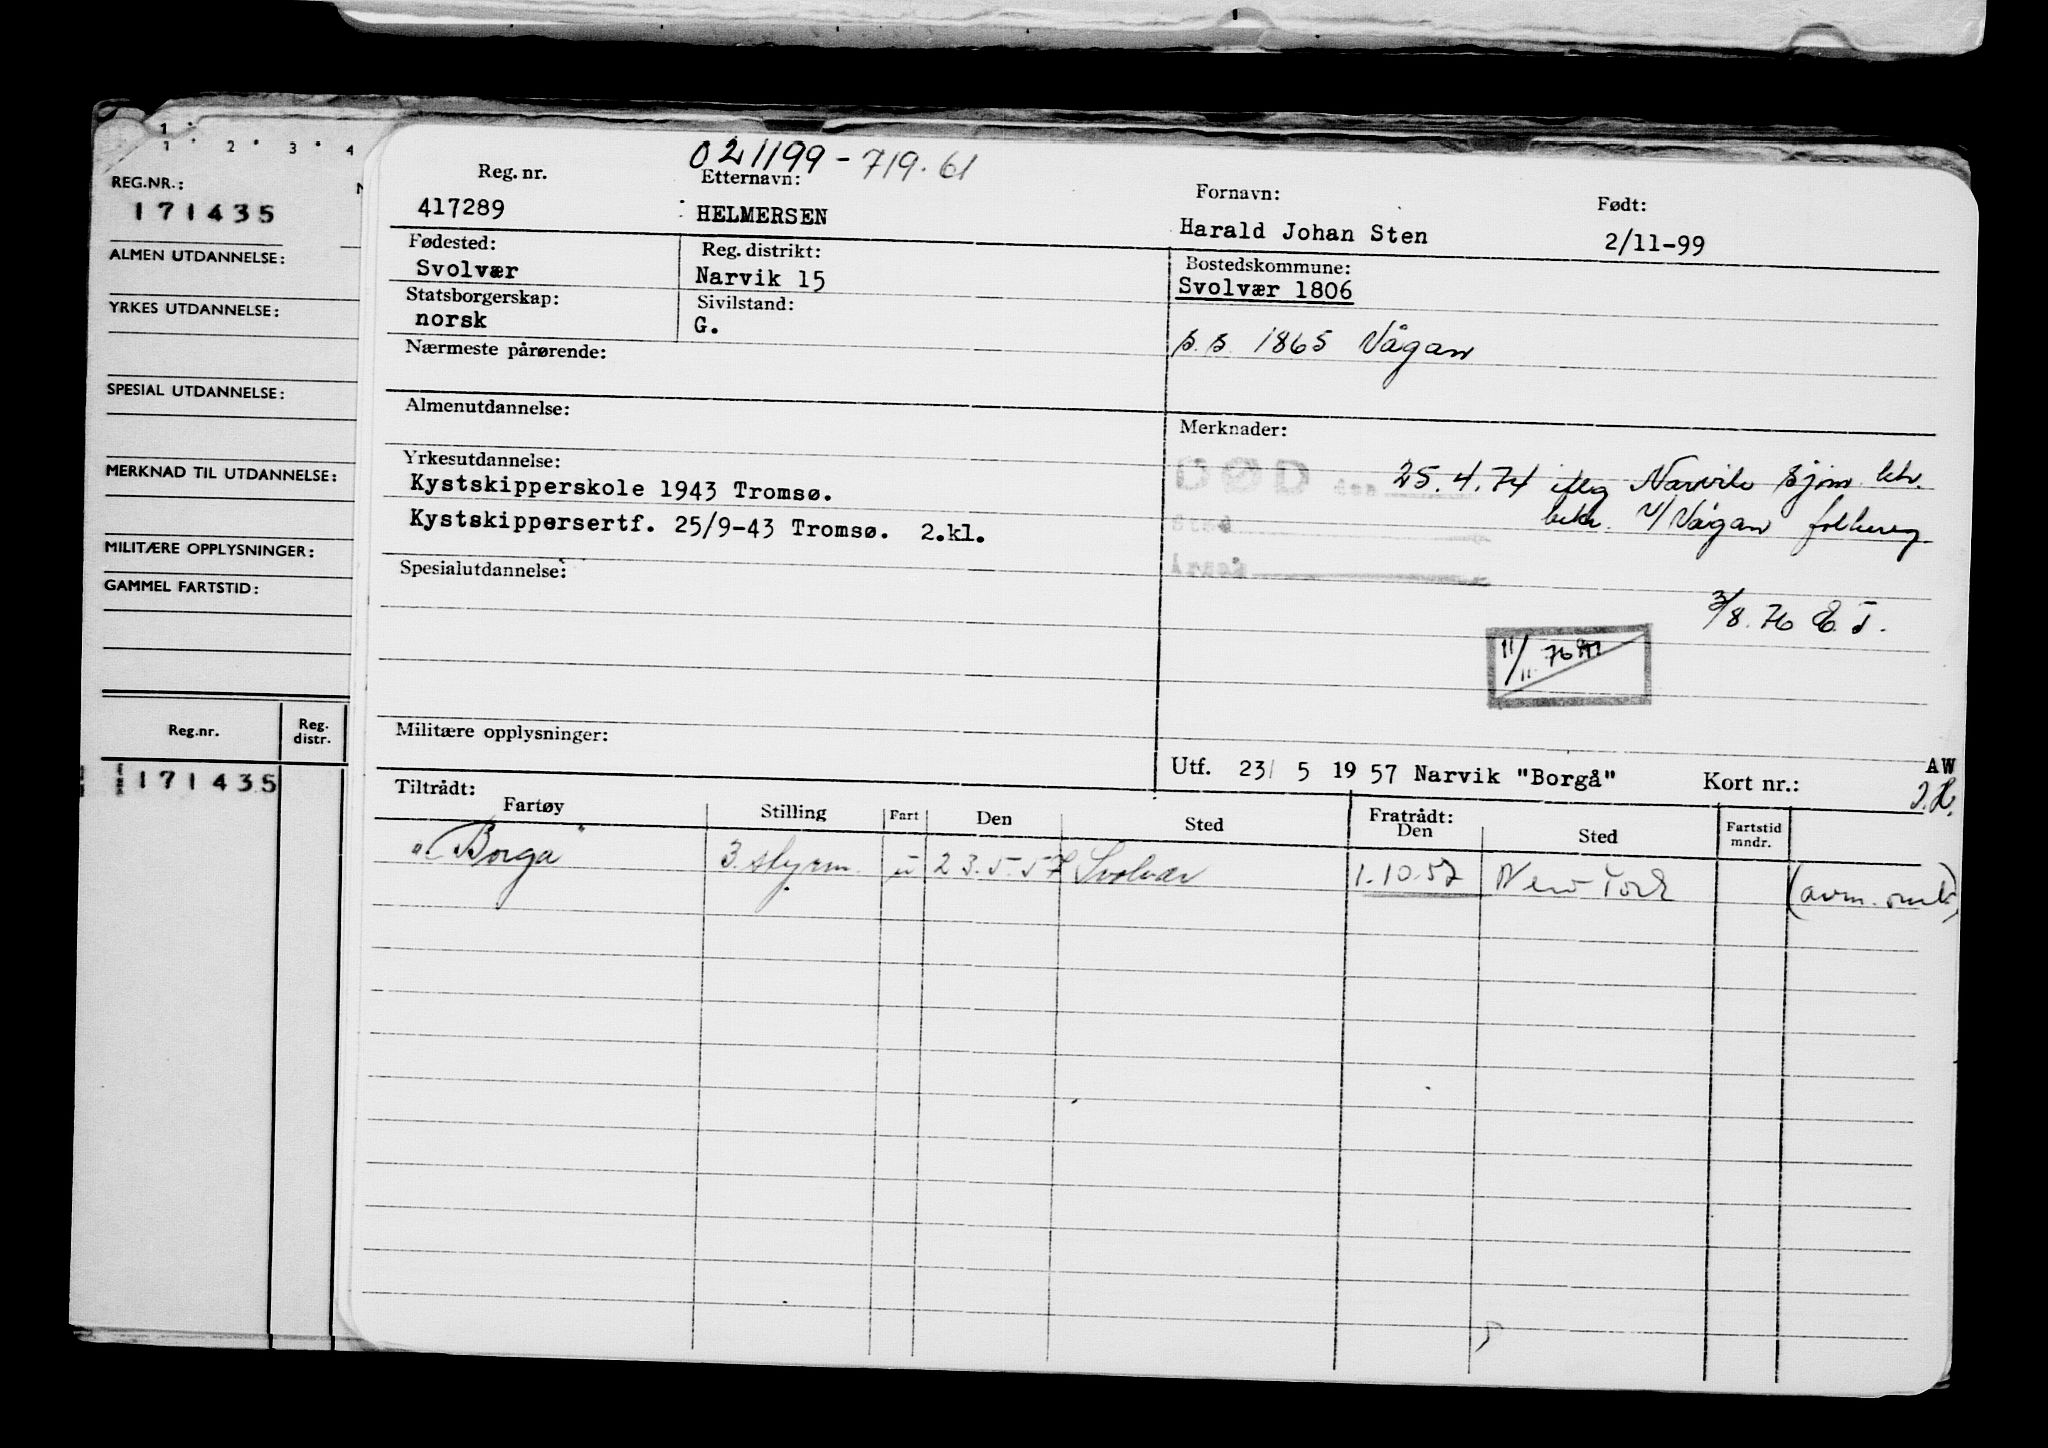 1 2 3 4
REG.NR.:
171435
ALMEN UTDANNELSE:
YRKES UTDANNELSE:
SPESIAL UTDANNELSE:
MERKNAD TIL UTDANNELSE:
MILITÆRE OPPLYSNINGER:
GAMMEL FARTSTID:
Reg.nr. Reg. distr.
171435
021199-719.61
Reg. nr. Etternavn: Fornavn: Født:
417289 HELMERSEN Harald Johan Sten 2/11-99
Fødested: Reg. distrikt: Bostedskommune:
Svolvær Narvik 15 Svolvær 1806
Statsborgerskap: Sivilstand:
norsk G.
s.s. 1865 Vågan
Nærmeste pårørende:
Almenutdannelse: Merknader:
Yrkesutdannelse:
Kystskipperskole 1943 Tromsø.
Kystskippersertf. 25/9-43 Tromsø. 2.kl.
DØD den
Sted
Årsak
25.4.74 iflg Narvik sjøm. ktr.
bekr. v/Vågan folkereg.
3/8.76 E.T.
11/11 76
Spesialutdannelse:
Militære opplysninger:
Utf. 23/ 5 1957 Narvik "Borgå" Kort nr.: AW
Tiltrådt: Fratrådt:
Fartøy Stilling Fart Den Sted Den Sted Fartstid mndr.
"Borga" 3. styrm. u 23.5.57 Svolvær 1.10.57 New York (avm.